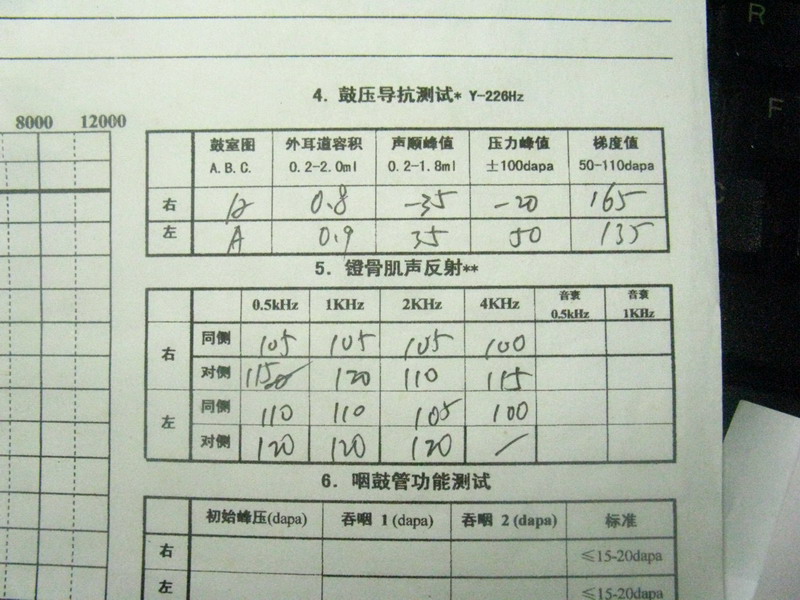 R
F
8000 12000
4. 鼓压导抗测试* Y-226Hz
鼓室图 外耳道容积 声顺峰值 压力峰值 梯度值
A.B.C. 0.2-2.0ml 0.2-1.8ml ±100dapa 50-110dapa
右 A 0.8 -35 -20 165
左 A 0.9 35 50 135
5. 镫骨肌声反射**
0.5kHz 1KHz 2KHz 4KHz 音衰 0.5kHz 音衰 1KHz
右 同侧 105 105 105 100
对侧 115 120 110 115
左 同侧 110 110 105 100
对侧 120 120 120 /
6. 咽鼓管功能测试
初始峰压(dapa) 吞咽 1 (dapa) 吞咽 2 (dapa) 标准
右 ≤15-20dapa
左 ≤15-20dapa